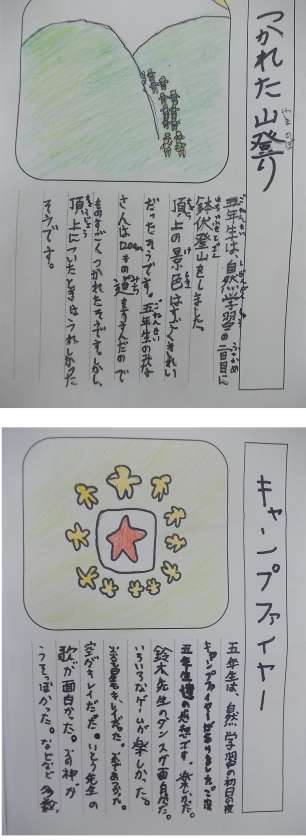 つかれた山登り
五年生は、自然学習の二日目に
鉢伏登山をしました。
頂上の景色はすごくきれい
だったそうです。五年生のみな
さんは12kmもの道を歩んだので
ものすごくつかれたそうです。しかし、
頂上についたときはうれしかった
そうです。
キャンプファイヤー
五年生は、自然学習の初日の夜
キャンプファイヤーがありました。
五年生達の感想です。楽しかった。
鈴木先生のダンスが面白かった。
いろいろなゲームが楽しかった。
空がキレイだった。いとう先生の
歌が面白かった。火の神が
うそっぽかった。などなど多数。